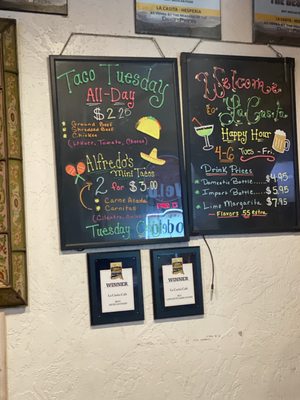 LA CASITA - HESPERIA
Taco Tuesday
All-Day
$2.25
Ground Beef
Shredded Beef
Chicken
(Lettuce, Tomato, Cheese)
Alfredo's
Mini Tacos
2 for $5.00
Carne Asada
Carnitas
Tuesday
Welcome
to
La Casita
Happy Hour
4-6 Tues-Fri
Drink Prices
Domestic Bottle $4.95
Import Bottle $5.95
Lime Margarita $7.95
Flavors .55 extra
WINNER
La Casita Cafe
WINNER
La Casita Cafe